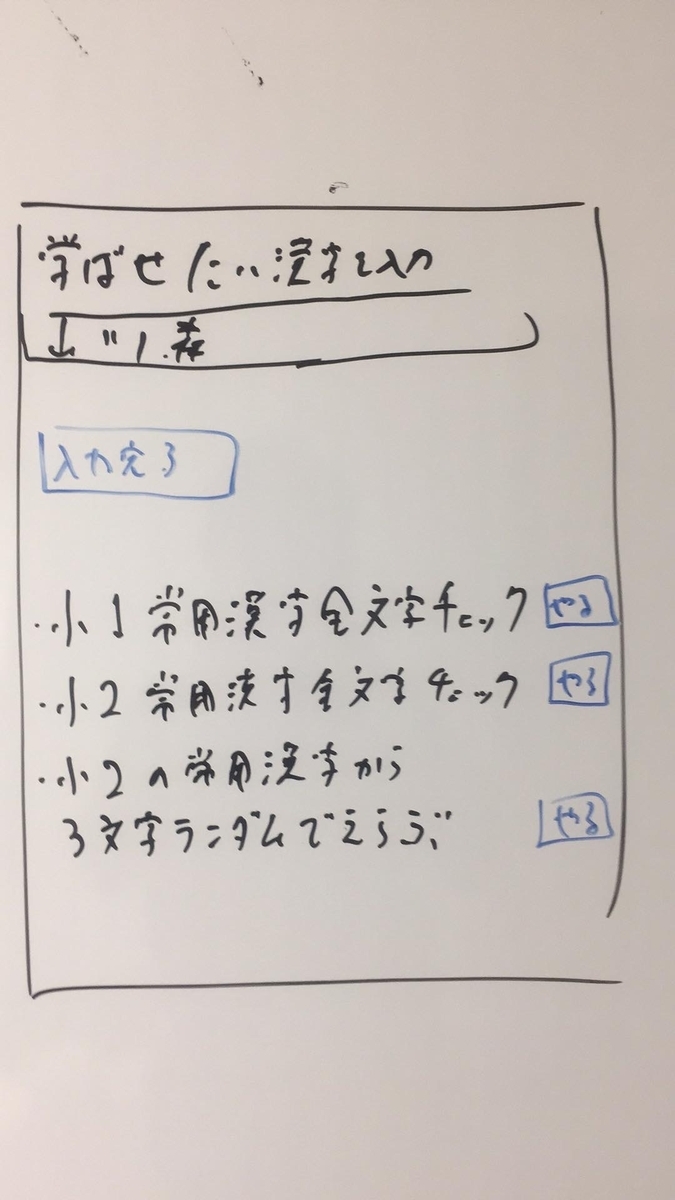 学ばせたい漢字を入力
入力完了
・小1 常用漢字全文字チェック やる
・小2 常用漢字全文字チェック やる
・小2の常用漢字から
3文字ランダムでえらぶ やる